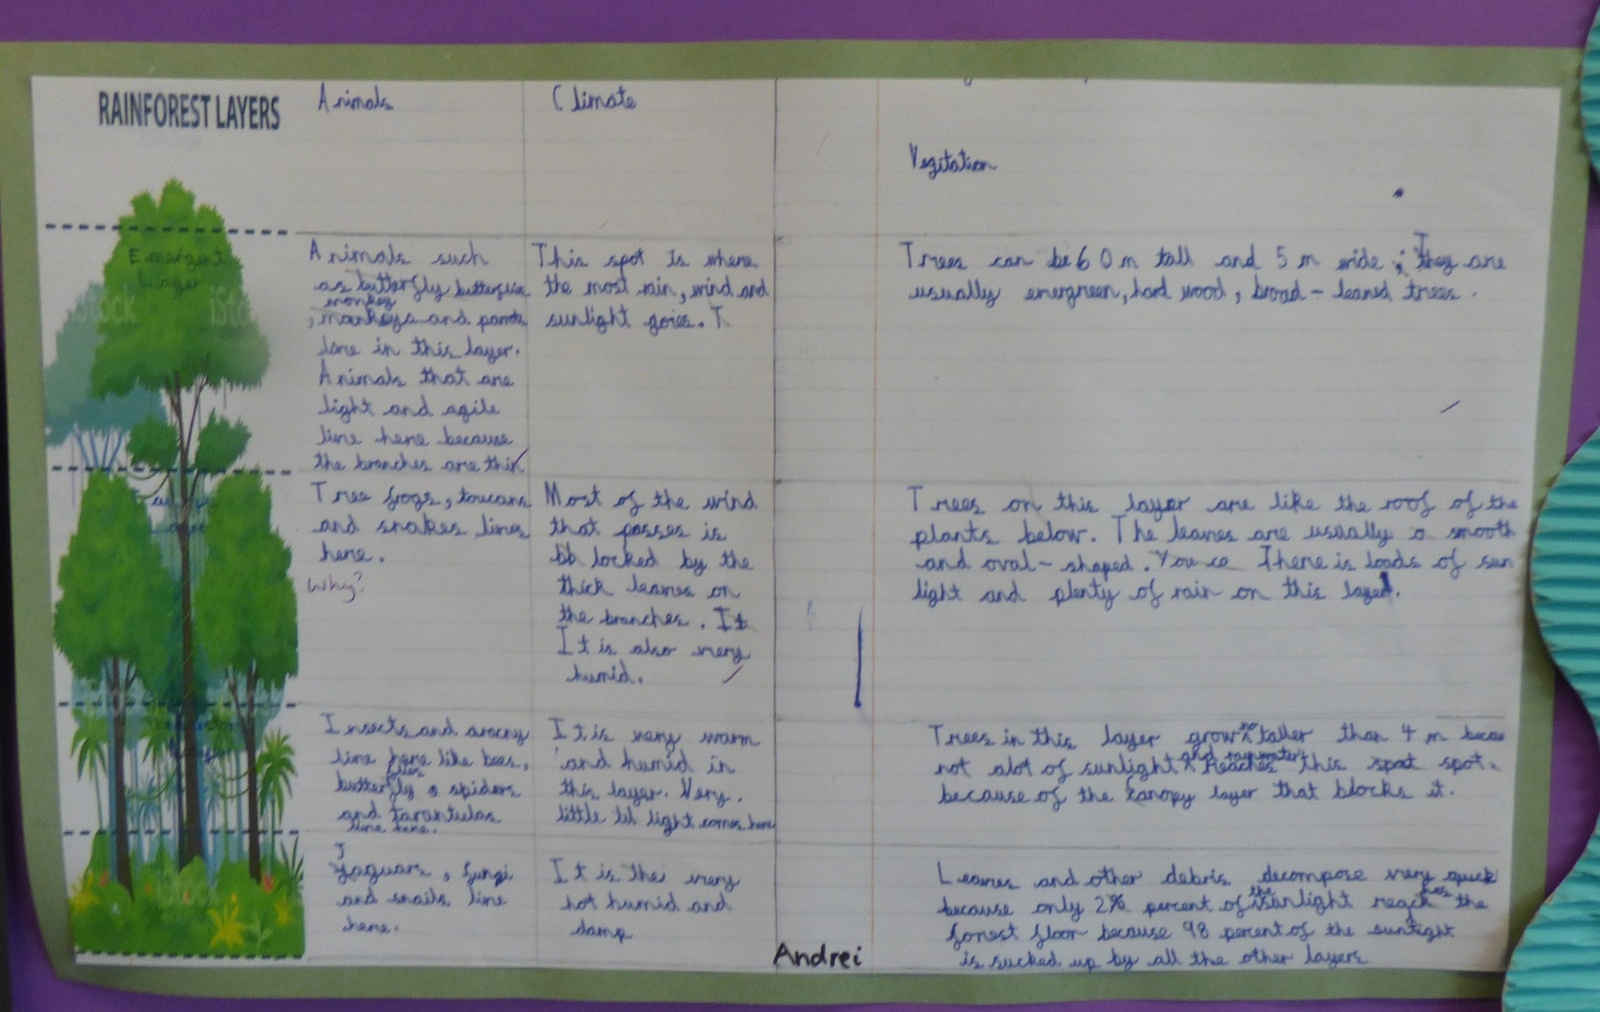 RAINFOREST LAYERS
Animals
Climate
Vegitation
Emergent
Layer
Animals such
as butterfly butterflies
monkey
, monkeys and parrots
live in this layer.
Animals that are
light and agile
live here because
the branches are thin
This spot Is where
the most rain, wind and
sunlight goies. T
Trees can be 60m tall and 5 m wide ; They are
usually evergreen, hard wood, broad - leaved trees.
Layer
Tree frogs, toucans
and snakes lives
here.
Why?
Most of the wind
that passes is
bb locked by the
thick leaves on
the branches. It
It is also very
humid.
Trees on this layer are like the roof of the
plants below. The leaves are usually a smooth
and oval - shaped. You ca There is loads of sun
light and plenty of rain on this layer.
Layer
Insects and
live here like bees,
flies
butterfly a spiders
and tarantulas
live here.
It is very warm
and humid in
this layer. Very.
little lil light comes here
Trees in this layer grow no taller than 4 m becae
not alot of sunlight and rainwater reaches this spot spot.
because of the canopy layer that blocks it.
J
jaguars, fungi
and snails live
here.
It is the very
hot humid and
damp
Leaves and other debris decompose very quick
because only 2% percent of the sunlight reach has the
forest floor because 98 percent of the sunlight
is sucked up by all the other layers
Andrei
iStock
iStock
iStock